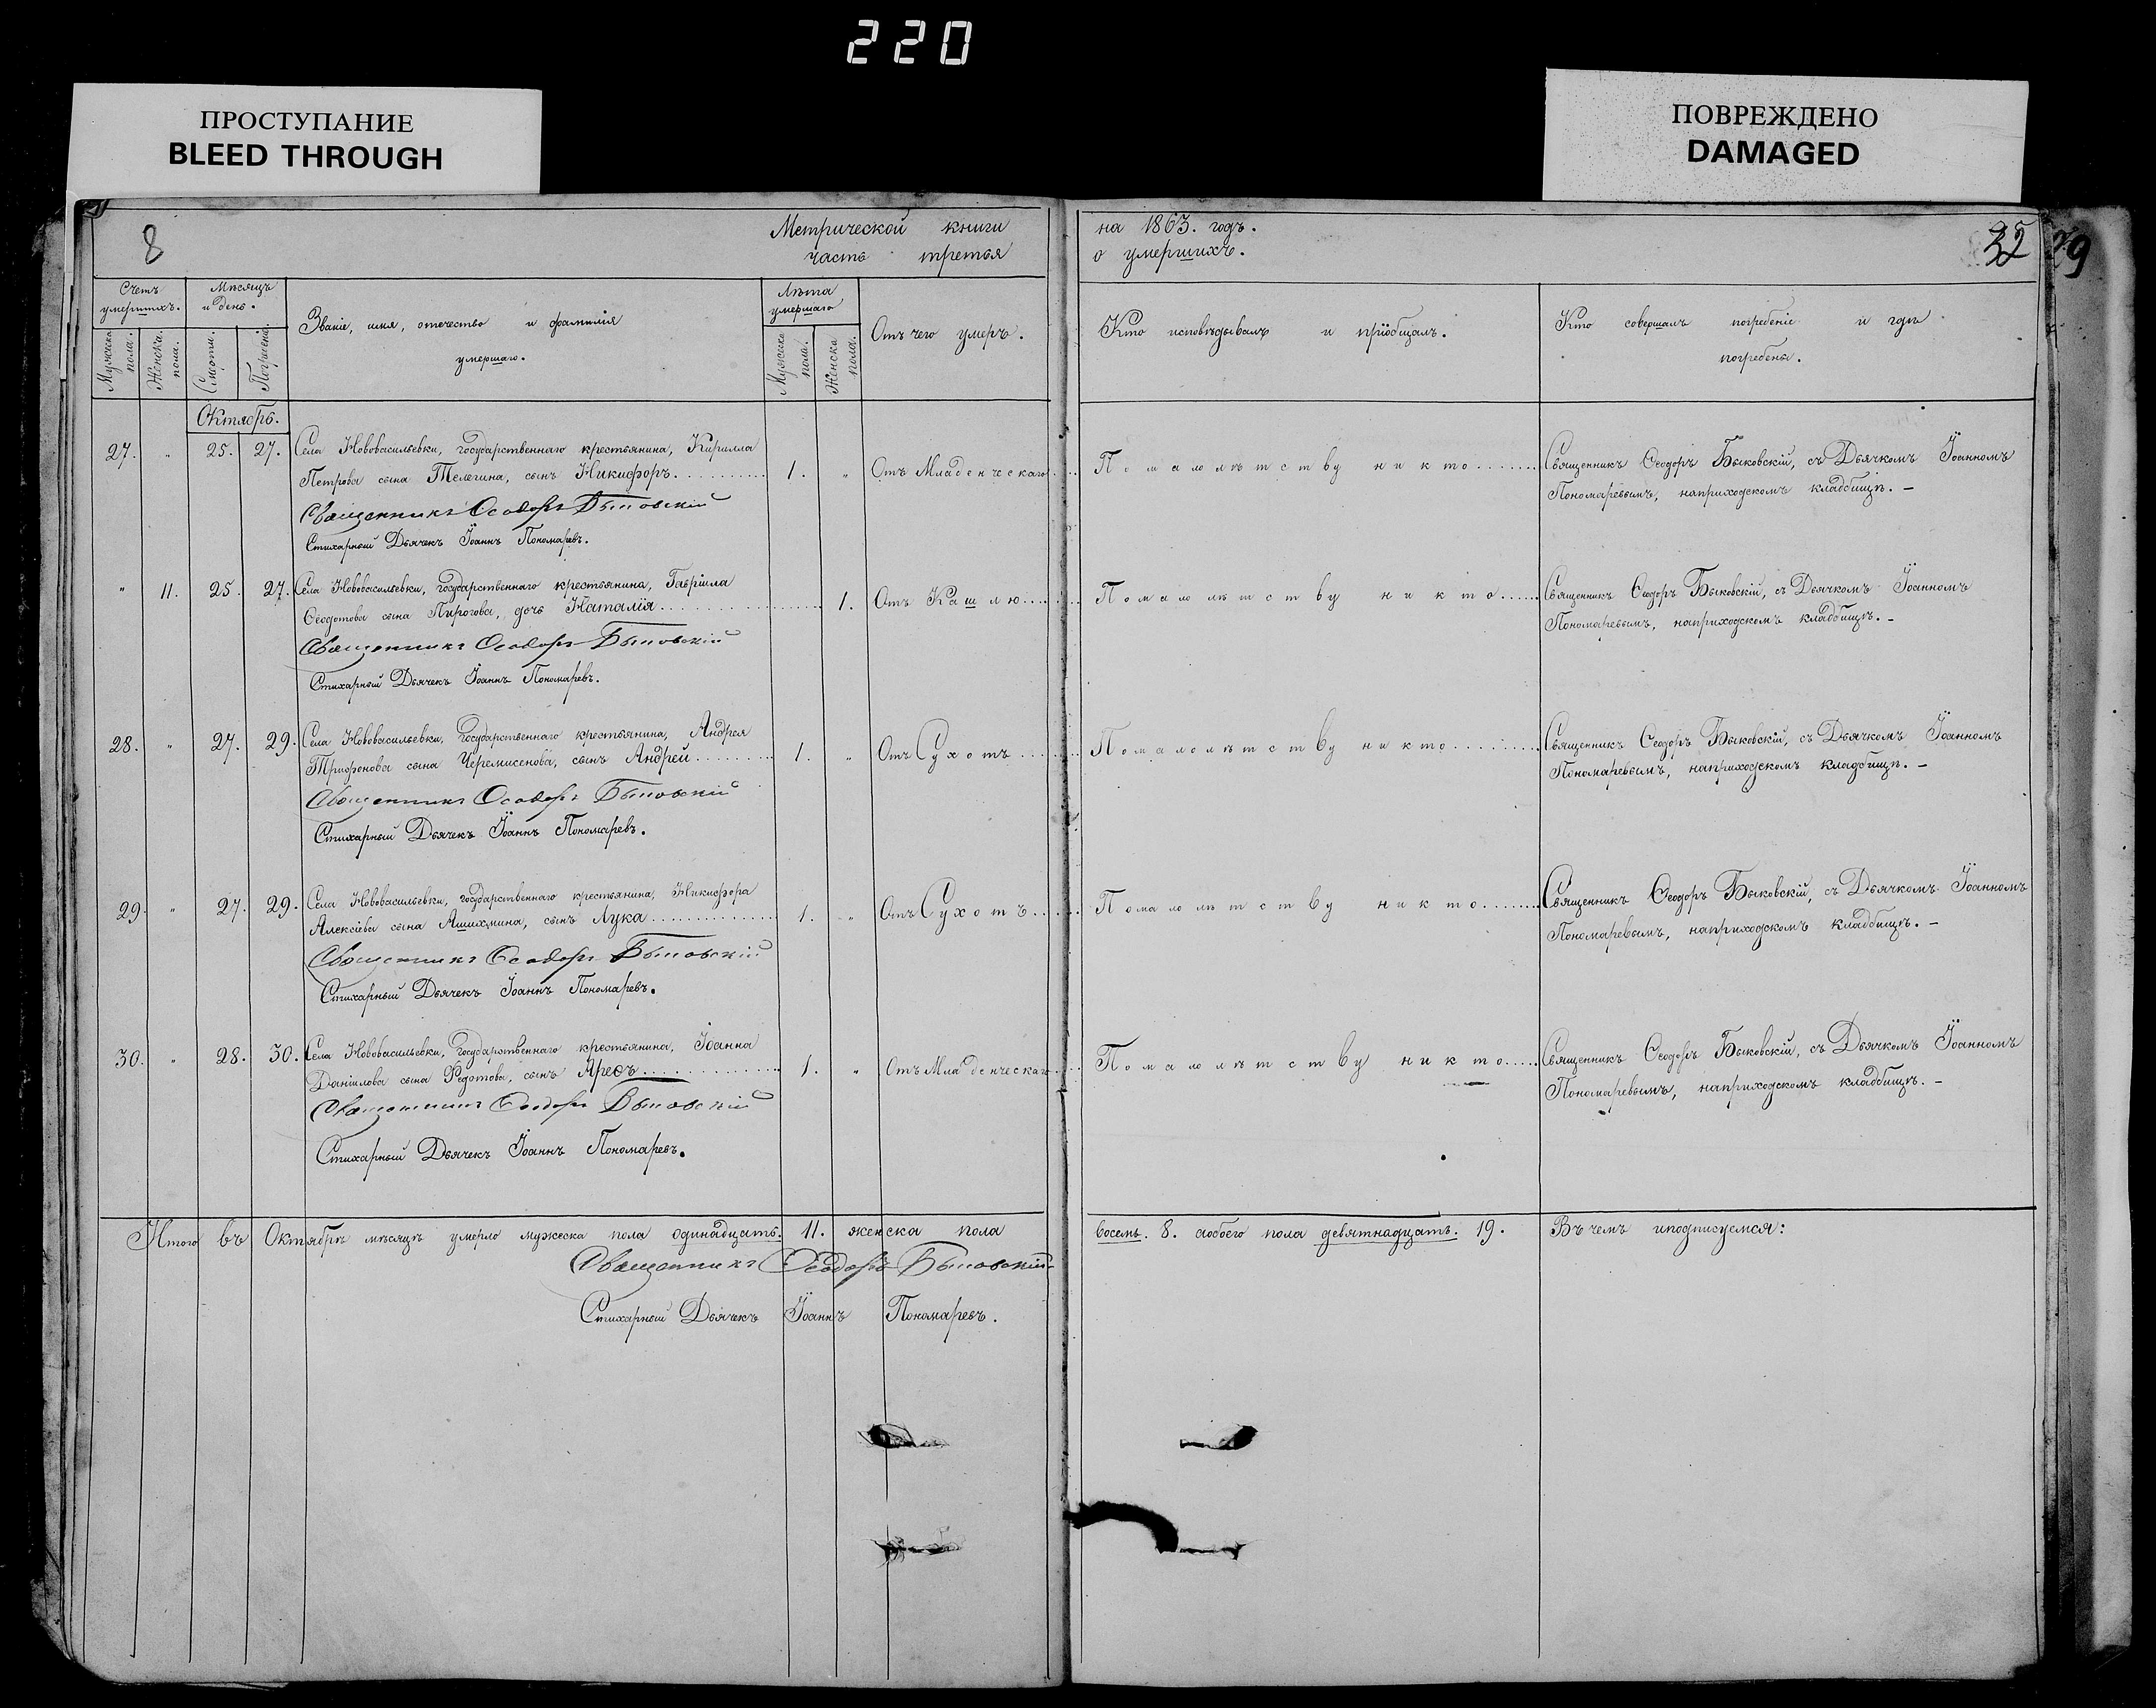 220
ПРОСТУПАНИЕ
BLEED THROUGH
ПОВРЕЖДЕНО
DAMAGED
8
Метрической книги
часть третья
на 1863. годъ.
о умершихъ.
32
29
Счетъ
умершихъ.
Мѣсяцъ
и день.
Званіе, имя, отечество и фамилія
умершаго.
Лѣта
умершаго
Отъ чего умеръ.
Кто исповѣдывалъ и пріобщалъ.
Кто совершалъ погребеніе и гдѣ
погребены.
Мужеска
пола.
Женска
пола.
Смерти.
Погребенія.
Мужеска
пола.
Женска
пола.
Октябрь.
27. " 25. 27. Села Нововасильевки, государственнаго крестьянина, Кирилла
Петрова сына Телегина, сынъ Никифоръ. 1. " Отъ Младенческаго По малолѣтству никто Священникъ Ѳеодоръ Быковскій, съ Дьячкомъ Іоанномъ
Пономаревымъ, наприходскомъ кладбищѣ. –
Священникъ Ѳеодоръ Быковскій
Стихарный Дьячекъ Іоаннъ Пономаревъ.
" 11. 25. 27. Села Нововасильевки, государственнаго крестьянина, Гавріила
Ѳеодотова сына Пирогова, дочь Наталія 1. Отъ Кашлю По малолѣтству никто Священникъ Ѳеодоръ Быковскій, съ Дьячкомъ Іоанномъ
Пономаревымъ, наприходскомъ кладбищѣ. –
Священникъ Ѳеодоръ Быковскій
Стихарный Дьячекъ Іоаннъ Пономаревъ.
28. " 27. 29. Села Нововасильевки, государственнаго крестьянина, Андрея
Трифонова сына Черемисенова, сынъ Андрей 1. " Отъ Сухотъ По малолѣтству никто Священникъ Ѳеодоръ Быковскій, съ Дьячкомъ Іоанномъ
Пономаревымъ, наприходскомъ кладбищѣ. –
Священникъ Ѳеодоръ Быковскій
Стихарный Дьячекъ Іоаннъ Пономаревъ.
29. " 27. 29. Села Нововасильевки, государственнаго крестьянина, Никифора
Алексіева сына Ашихмина, сынъ Лука 1. " Отъ Сухотъ По малолѣтству никто Священникъ Ѳеодоръ Быковскій, съ Дьячкомъ Іоанномъ
Пономаревымъ, наприходскомъ кладбищѣ. –
Священникъ Ѳеодоръ Быковскій
Стихарный Дьячекъ Іоаннъ Пономаревъ.
30. " 28. 30. Села Нововасильевки, государственнаго крестьянина, Іоанна
Даніилова сына Федотова, сынъ 1. " Отъ Младенческаго По малолѣтству никто Священникъ Ѳеодоръ Быковскій, съ Дьячкомъ Іоанномъ
Пономаревымъ, наприходскомъ кладбищѣ. –
Священникъ Ѳеодоръ Быковскій
Стихарный Дьячекъ Іоаннъ Пономаревъ.
Итого въ Октябрѣ мѣсяцѣ умерло мужеска пола одинадцать. 11. женска пола восемь. 8. аобоего пола девятнадцать. 19. Въ чемъ иподписуемся:
Священникъ Ѳеодоръ Быковскій
Стихарный Дьячекъ Іоаннъ Пономаревъ.